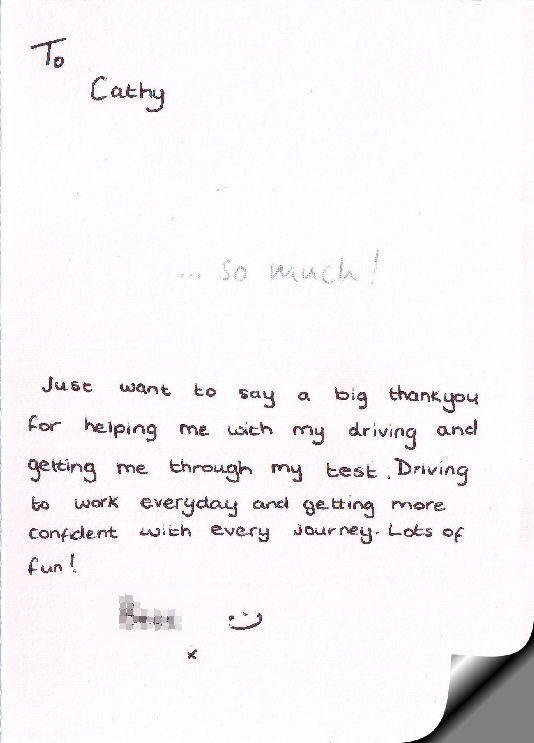 To
Cathy
... so much!
Just want to say a big thankyou
for helping me with my driving and
getting me through my test. Driving
to work everyday and getting more
confident with every journey. Lots of
fun!
x